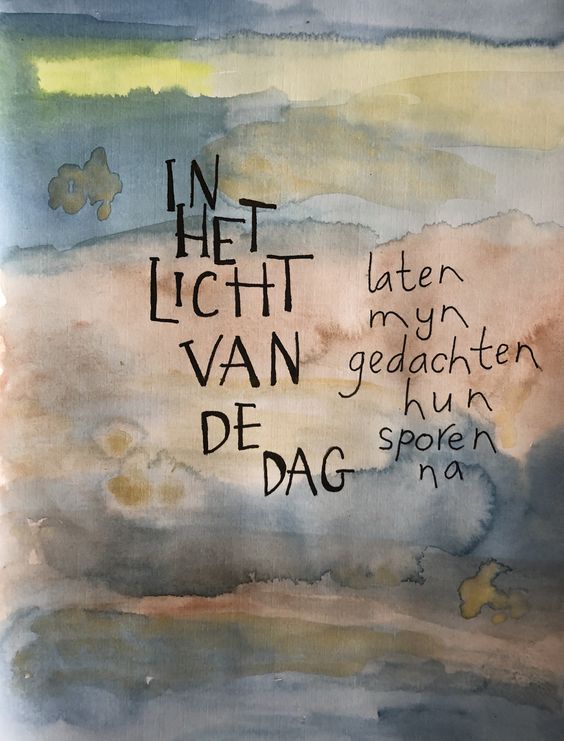 IN
HET
LICHT
VAN
DE
DAG
laten
myn
gedachten
hun
sporen
na